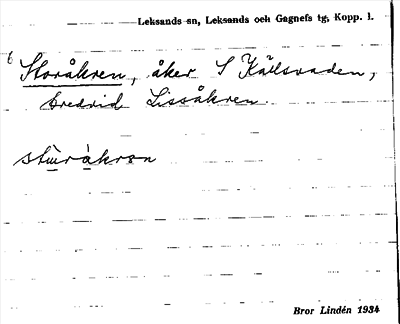 Leksands sn, Leksands och Gagnefs tg, Kopp. l.
6
Storåkren, åker S Källsvaden,
bredvid Lissåkren.
stùràkrɘn
Bror Lindén 1934